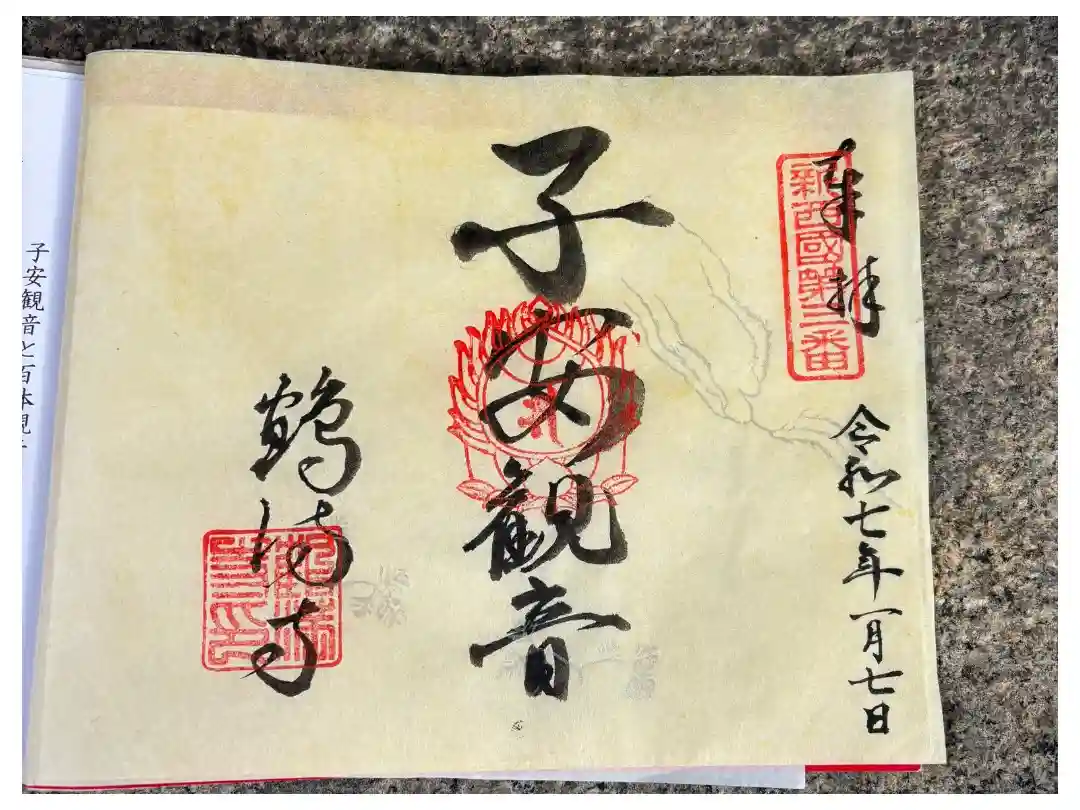 奉拝
新西國第三番
令和七年一月七日
子安観音
鶴満寺
鶴満寺印
子安観音と百体観